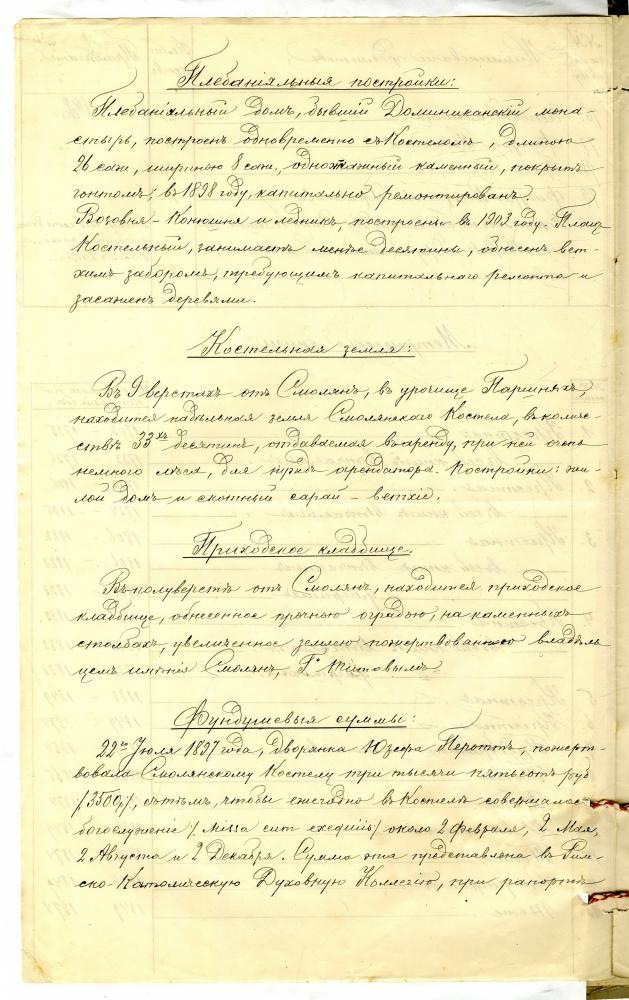 Плебаніяльныя постройки:
Плебаніяльный домъ, бывшій Доминиканскій мона-
стырь, построенъ одновременно съ Костеломъ, длиною
26 саж, шириною 8 саж, одноэтажный каменный, покрытъ
гонтомъ, въ 1898 году, капитально ремонтированъ.
Возовня - Конюшня и ледникъ, построены въ 1903 году. Плацъ
Костельный, занимаетъ менѣе десятины, обнесенъ вет-
химъ заборомъ, требующимъ капитальнаго ремонта и
засаженъ деревями.
Костельная земля:
Въ 9 верстахъ отъ Смолянъ, въ урочище Паршняхъ,
находится надѣльная земля Смолянскаго Костела, въ количе-
ствѣ 33хъ десятинъ, отдаваемая въ аренду, при ней очень
немного лѣса, для нуждъ арендатора. Постройки: жи-
лой домъ и скотный сарай - ветхіе.
Приходское кладбище.
Въ полуверстѣ отъ Смолянъ, находится приходское
кладбище, обнесенное прочною оградою, на каменныхъ
столбахъ, увеличенное землею пожертвованною владѣль
цемъ имѣнія Смолянъ, Гº Титовымъ.
Фундушевыя суммы:
22го Іюля 1897 года, дворянка Юзефа Перотть, пожерт-
вовала Смолянскому Костелу три тысячи пятьсотъ руб
/3500р/, съ тѣмъ, чтобы ежегодно въ Костелѣ совершалось
богослуженіе /Missa cum exequiis/ около 2 Февраля, 2 Мая,
2 Августа и 2 Декабря. Сумма эта представлена въ Рим-
ско-Католическую Духовную Коллегію, при рапортѣ